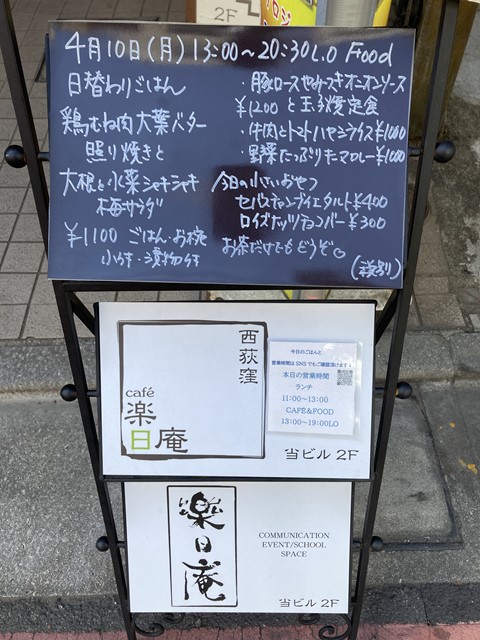 2F
4月10日(月) 13:00〜20:30L.O Food
日替わりごはん
鶏むね肉大葉バター
照り焼きと
大根と水菜シャキシャキ
梅サラダ
¥1100 ごはん・お椀
小付・漬物付
・豚ロースやみつきオニオンソース
¥1200 と玉子焼定食
・牛肉とトマトハヤシライス¥1000
・野菜たっぷりキーマカレー¥1000
今日の小さいおやつ
セバスチャンプイエタルト¥400
ロイズナッツチョコバー¥300
お茶だけでもどうぞ。
(税込)
西荻窪
café
楽日庵
今日のごはんと
営業時間は SNS でもご確認頂けます
本日の営業時間
ランチ
11:00〜13:00
CAFÉ&FOOD
13:00〜19:00LO
当ビル 2F
楽日庵
COMMUNICATION
EVENT/SCHOOL
SPACE
当ビル 2F